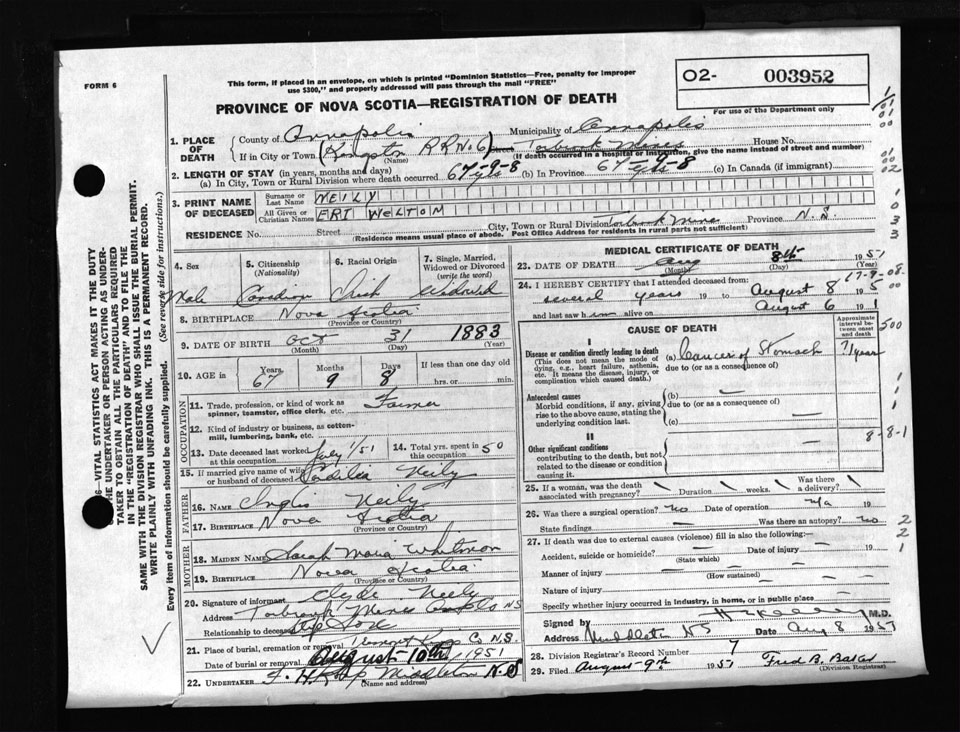 FORM 6
This form, if placed in an envelope, on which is printed "Dominion Statistics—Free, penalty for improper
use $300," and properly addressed will pass through the mail "FREE"
O2- 003952
For use of the Department only
PROVINCE OF NOVA SCOTIA—REGISTRATION OF DEATH
1. PLACE OF DEATH County of Annapolis Municipality of Annapolis
If in City or Town (Kingston R R No 6) Torbrook Mines House No.
(Name) (If death occurred in a hospital or institution, give the name instead of street and number)
2. LENGTH OF STAY (in years, months and days)
(a) In City, Town or Rural Division where death occurred 67-9-8 yrs (b) In Province 67-9-8 yrs (c) In Canada (if immigrant)
3. PRINT NAME OF DECEASED Surname or Last Name NEILY
All Given or Christian Names ERI WELTON
RESIDENCE No. Street City, Town or Rural Division Torbrook Mines Province N.S.
(Residence means usual place of abode. Post Office Address for residents in rural parts not sufficient)
4. Sex Male
5. Citizenship (Nationality) Canadian
6. Racial Origin Irish
7. Single, Married, Widowed or Divorced (write the word) Widowed
8. BIRTHPLACE Nova Scotia
(Province or Country)
9. DATE OF BIRTH Oct 31 1883
(Month) (Day) (Year)
10. AGE in Years 67 Months 9 Days 8 If less than one day hrs. or min.
OCCUPATION
11. Trade, profession, or kind of work as spinner, teamster, office clerk, etc. Farmer
12. Kind of industry or business, as cotton-mill, lumbering, bank, etc.
13. Date deceased last worked at this occupation July 1/51
14. Total yrs. spent in this occupation 50
15. If married give name of wife or husband of deceased Neily
FATHER
16. NAME Inglis Neily
17. BIRTHPLACE Nova Scotia
(Province or Country)
MOTHER
18. MAIDEN NAME Sarah Maria Whitman
19. BIRTHPLACE Nova Scotia
(Province or Country)
20. Signature of informant Clyde Neily
Address Torbrook Mines NS
Relationship to deceased Step Son
21. Place of burial, cremation or removal Kings Co N.S.
Date of burial or removal August 10th 1951
22. UNDERTAKER Middleton N.S
(Name and address)
MEDICAL CERTIFICATE OF DEATH
23. DATE OF DEATH Aug 8th 1951
(Month) (Day) (Year)
24. I HEREBY CERTIFY that I attended deceased from:
several years 19 to August 8 195
and last saw him alive on August 6 1 1
67-9-08
CAUSE OF DEATH
Approximate interval between onset and death
I
Disease or condition directly leading to death
(This does not mean the mode of dying, e.g., heart failure, asthenia, etc. It means the disease, injury, or complication which caused death.)
(a) Cancer of Stomach ? 1 year
due to (or as a consequence of)
Antecedent causes
Morbid conditions, if any, giving rise to the above cause, stating the underlying condition last.
(b)
due to (or as a consequence of)
(c)
II
Other significant conditions
contributing to the death, but not related to the disease or condition causing it.
8-8-1
25. If a woman, was the death associated with pregnancy? Duration weeks. Was there a delivery?
26. Was there surgical operation? no Date of operation n/a 19
State findings Was there an autopsy? no
27. If death was due to external causes (violence) fill in also the following:—
Accident, suicide or homicide? Date of injury 19
(State which)
Manner of injury
(How sustained)
Nature of injury
Specify whether injury occurred in industry, in home, or in public place
Signed by M.D.
Address Middleton NS Date Aug 8 1951
28. Division Registrar's Record Number 7
29. Filed August 9th 1951 Fred B. Baker
(Division Registrar)
6—VITAL STATISTICS ACT MAKES IT THE DUTY
THE UNDERTAKER OR PERSON ACTING AS UNDER-
TAKER TO OBTAIN ALL THE PARTICULARS REQUIRED
IN THE "REGISTRATION OF DEATH" AND TO FILE THE
SAME WITH THE DIVISION REGISTRAR WHO SHALL ISSUE THE BURIAL PERMIT.
WRITE PLAINLY WITH UNFADING INK. THIS IS A PERMANENT RECORD.
Every item of information should be carefully supplied. (See reverse side for instructions.)